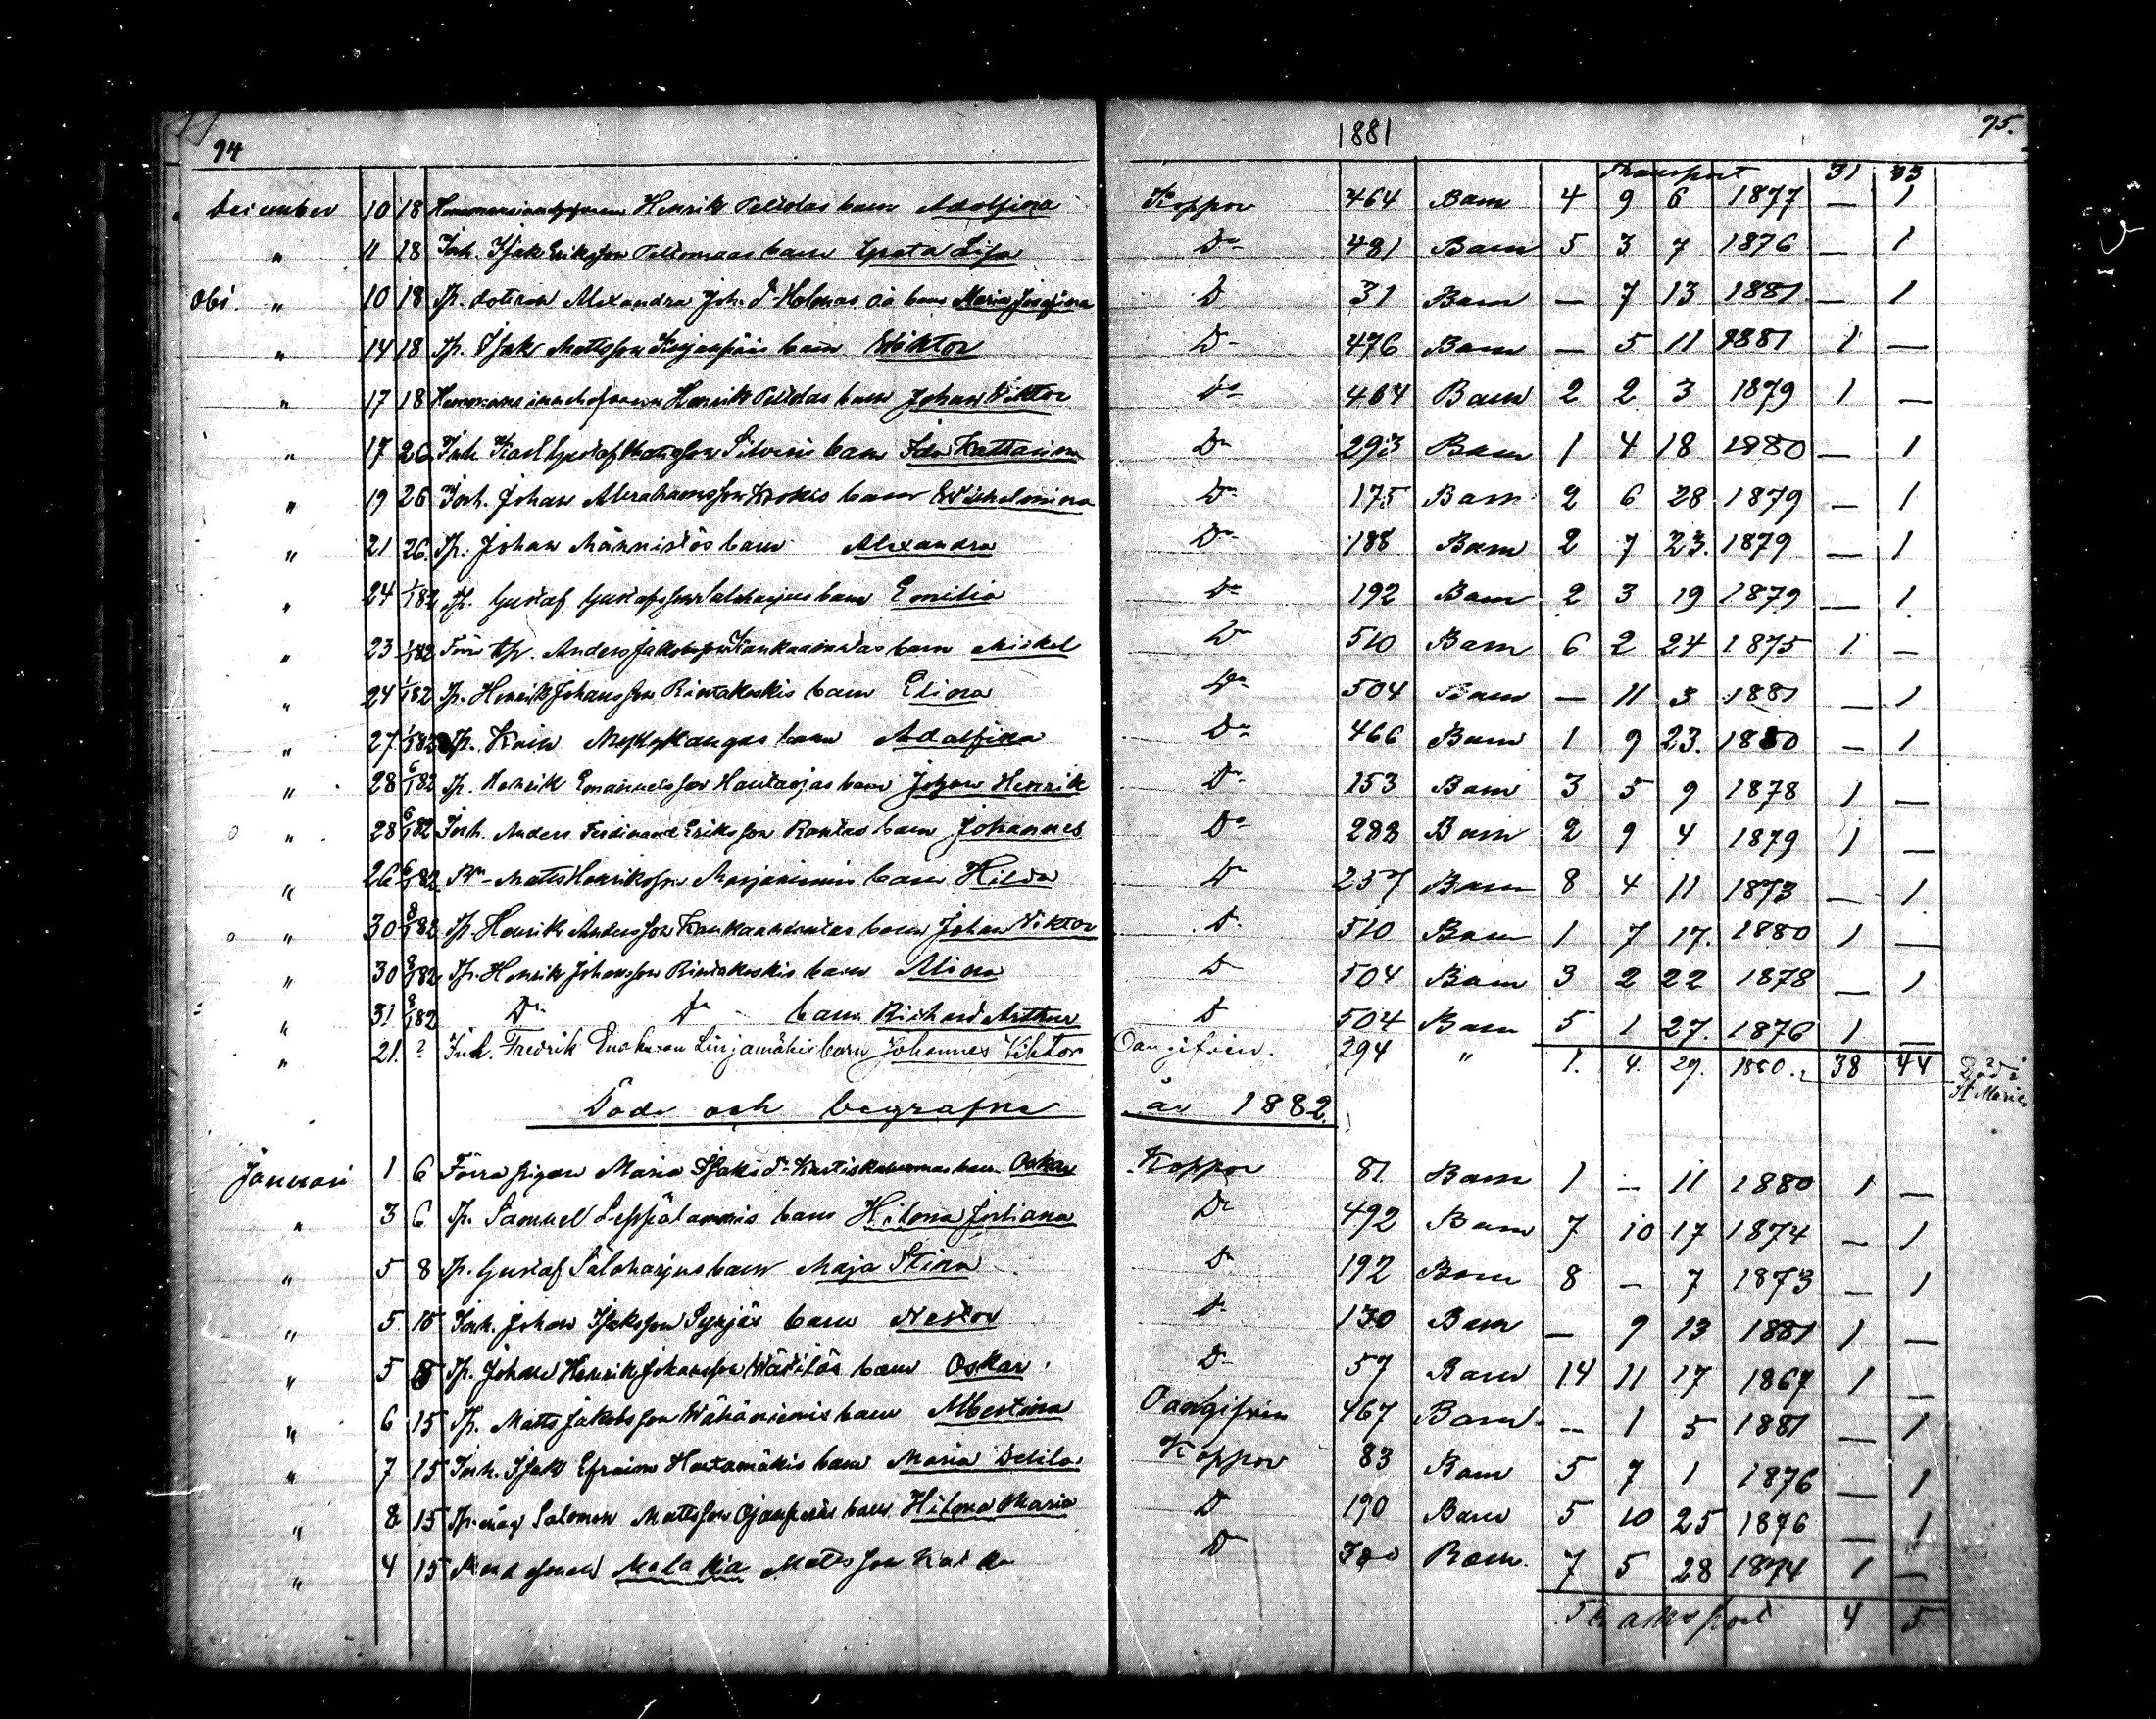 94
1881
95.
Transport 31 33
December 10 18 Henrik Peldolas barn Adolfina Koppor 464 Barn 4 9 6 1877 — 1
" 11 18 Inh. Isak Eriksson Peltomaas barn Greta Lisa Do 481 Barn 5 3 7 1876 — 1
Obs. " 10 18 Tp. dottren Alexandra Joh. d. Holmas oä barn Maria Josefina D 31 Barn — 7 13 1881 — 1
" 14 18 Tp. Isak Mattsson barn Wiktor D 476 Barn — 5 11 1881 1 —
" 17 18 Henrik Peldolas barn Johan Viktor Do 464 Barn 2 2 3 1879 1 —
" 17 26 Inh. Karl Gustaf barn Ida Kattarina Do 293 Barn 1 4 18 1880 — 1
" 19 26 Inh. Johan Abrahamsson Koskis barn Wilhelmina Do 175 Barn 2 6 28 1879 — 1
" 21 26. Tp. Johan Männistös barn Alexandra Do 188 Barn 2 7 23. 1879 — 1
" 24 1/1 82 Tp. Gustaf Gustafsson Saloharjus barn Emilia Do 192 Barn 2 3 19 1879 — 1
" 23 1/1 82 Förre tp. Anders Jakobsson Kankaanrintas barn Mickel Do 510 Barn 6 2 24 1875 1 —
" 24 1/1 82 Tp. Henrik Johansson Rintakoskis barn Elina Do 504 Barn — 11 3 1881 — 1
" 27 1/1 82 Tp. barn Adolfina Do 466 Barn 1 9 23. 1880 — 1
" 28 6/1 82 Tp. Henrik Emanuelsson Hautaojas barn Johan Henrik Do 153 Barn 3 5 9 1878 1 —
" 28 6/1 82 Inh. Anders Ferdinand Eriksson Rantas barn Johannes Do 288 Barn 2 9 4 1879 1 —
" 26 6/1 82 Bn Matts Henriksson Marjaniemis barn Hilda Do 257 Barn 8 4 11 1873 — 1
" 30 8/1 82 Tp. Henrik Andersson Kankaanrintas barn Johan Viktor D 510 Barn 1 7 17. 1880 1 —
" 30 8/1 82 Tp. Henrik Johansson Rintakoskis barn Alina D 504 Barn 3 2 22 1878 — 1
" 31 8/1 82 Do Do barn Richard Arthur D 504 Barn 5 1 27. 1876 1 —
" 21. ? Inh. Fredrik Linjamäkis barn Johannes Viktor Oangifven. 294 " 1. 4. 29. 1880. 38 44 Död i St Maries
Döde och begrafne år 1882.
Januari 1 6 Förra pigan Maria Isaks dr barn Oskar Koppor 81 Barn 1 — 11 1880 1 —
" 3 6 Tp. Samuel Leppälammis barn Hilma Juliana Do 492 Barn 7 10 17 1874 — 1
" 5 8 Tp. Gustaf Saloharjus barn Maja Stina Do 192 Barn 8 — 7 1873 — 1
" 5 15 Inh. Johan Isaksson Syrjäs barn Nestor D 130 Barn — 9 13 1881 1 —
" 5 8 Tp. Johan Henrik Johansson barn Oskar D 57 Barn 14 11 17 1867 1 —
" 6 15 Tp. Matts Jakobsson Wähäniemis barn Albertina Oangifven 467 Barn — 1 5 1881 — 1
" 7 15 Inh. Isak Efraim Hautamäkis barn Maria Delila Koppor 83 Barn 5 7 1 1876 — 1
" 8 15 Salomon Mattsson Ojanperäs barn Hilma Maria D 190 Barn 5 10 25 1876 — 1
" 4 15 Malakia Mattsson D Barn 7 5 28 1874 1 —
Transport 4 5